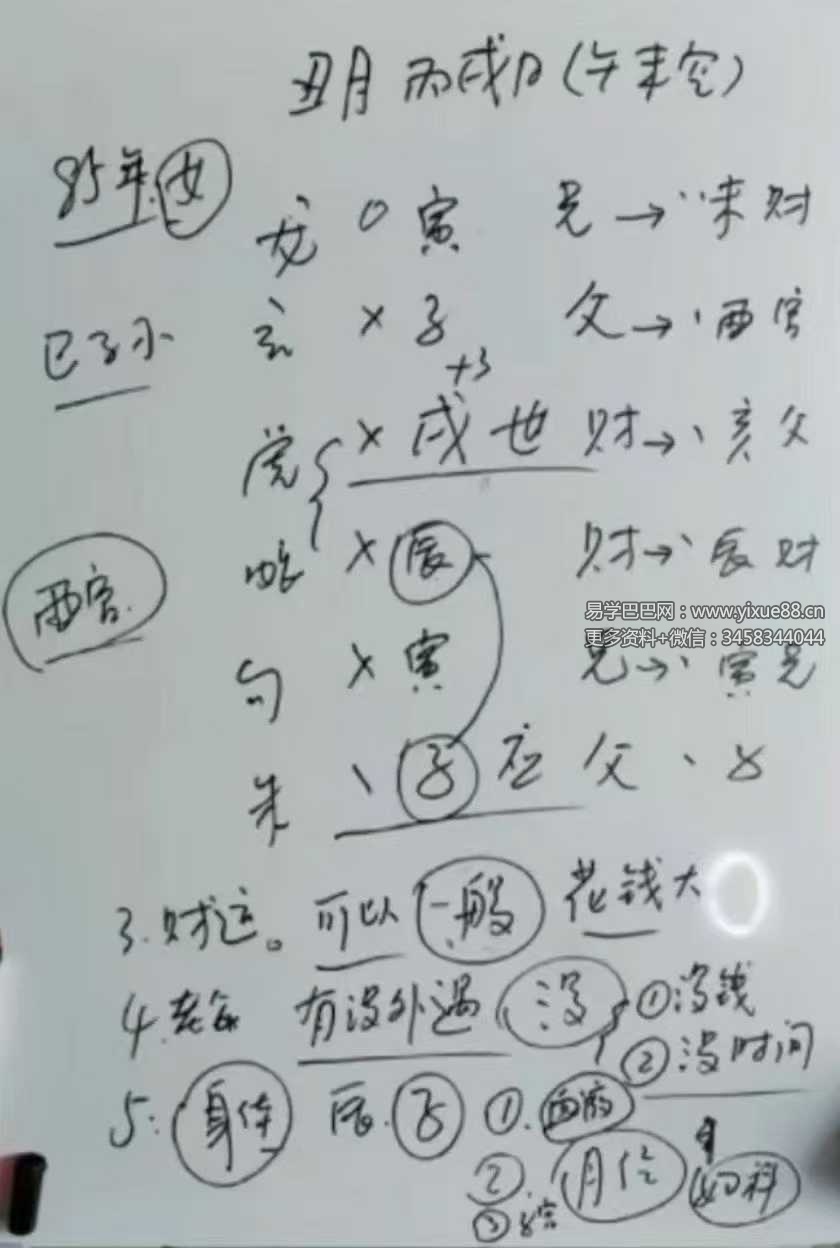 丑月 丙戌日(午未空)
85年 女
龙 〇 寅 兄→〃未财
巳子小 玄 × 子 父→、酉官
+3
× 戌 世 财→、亥父
酉官 蛇 × 辰 财→、辰财
易学巴巴网：www.yixue88.cn
更多资料+微信：3458344044
勾 × 寅 兄→、寅兄
朱 、子 应 父、
3.财运。可以 一般 花钱大
4.老公 有没外遇 没 ①没钱
②没时间
5.身体 辰.子 ①.
②.月经 妇科
③子宫